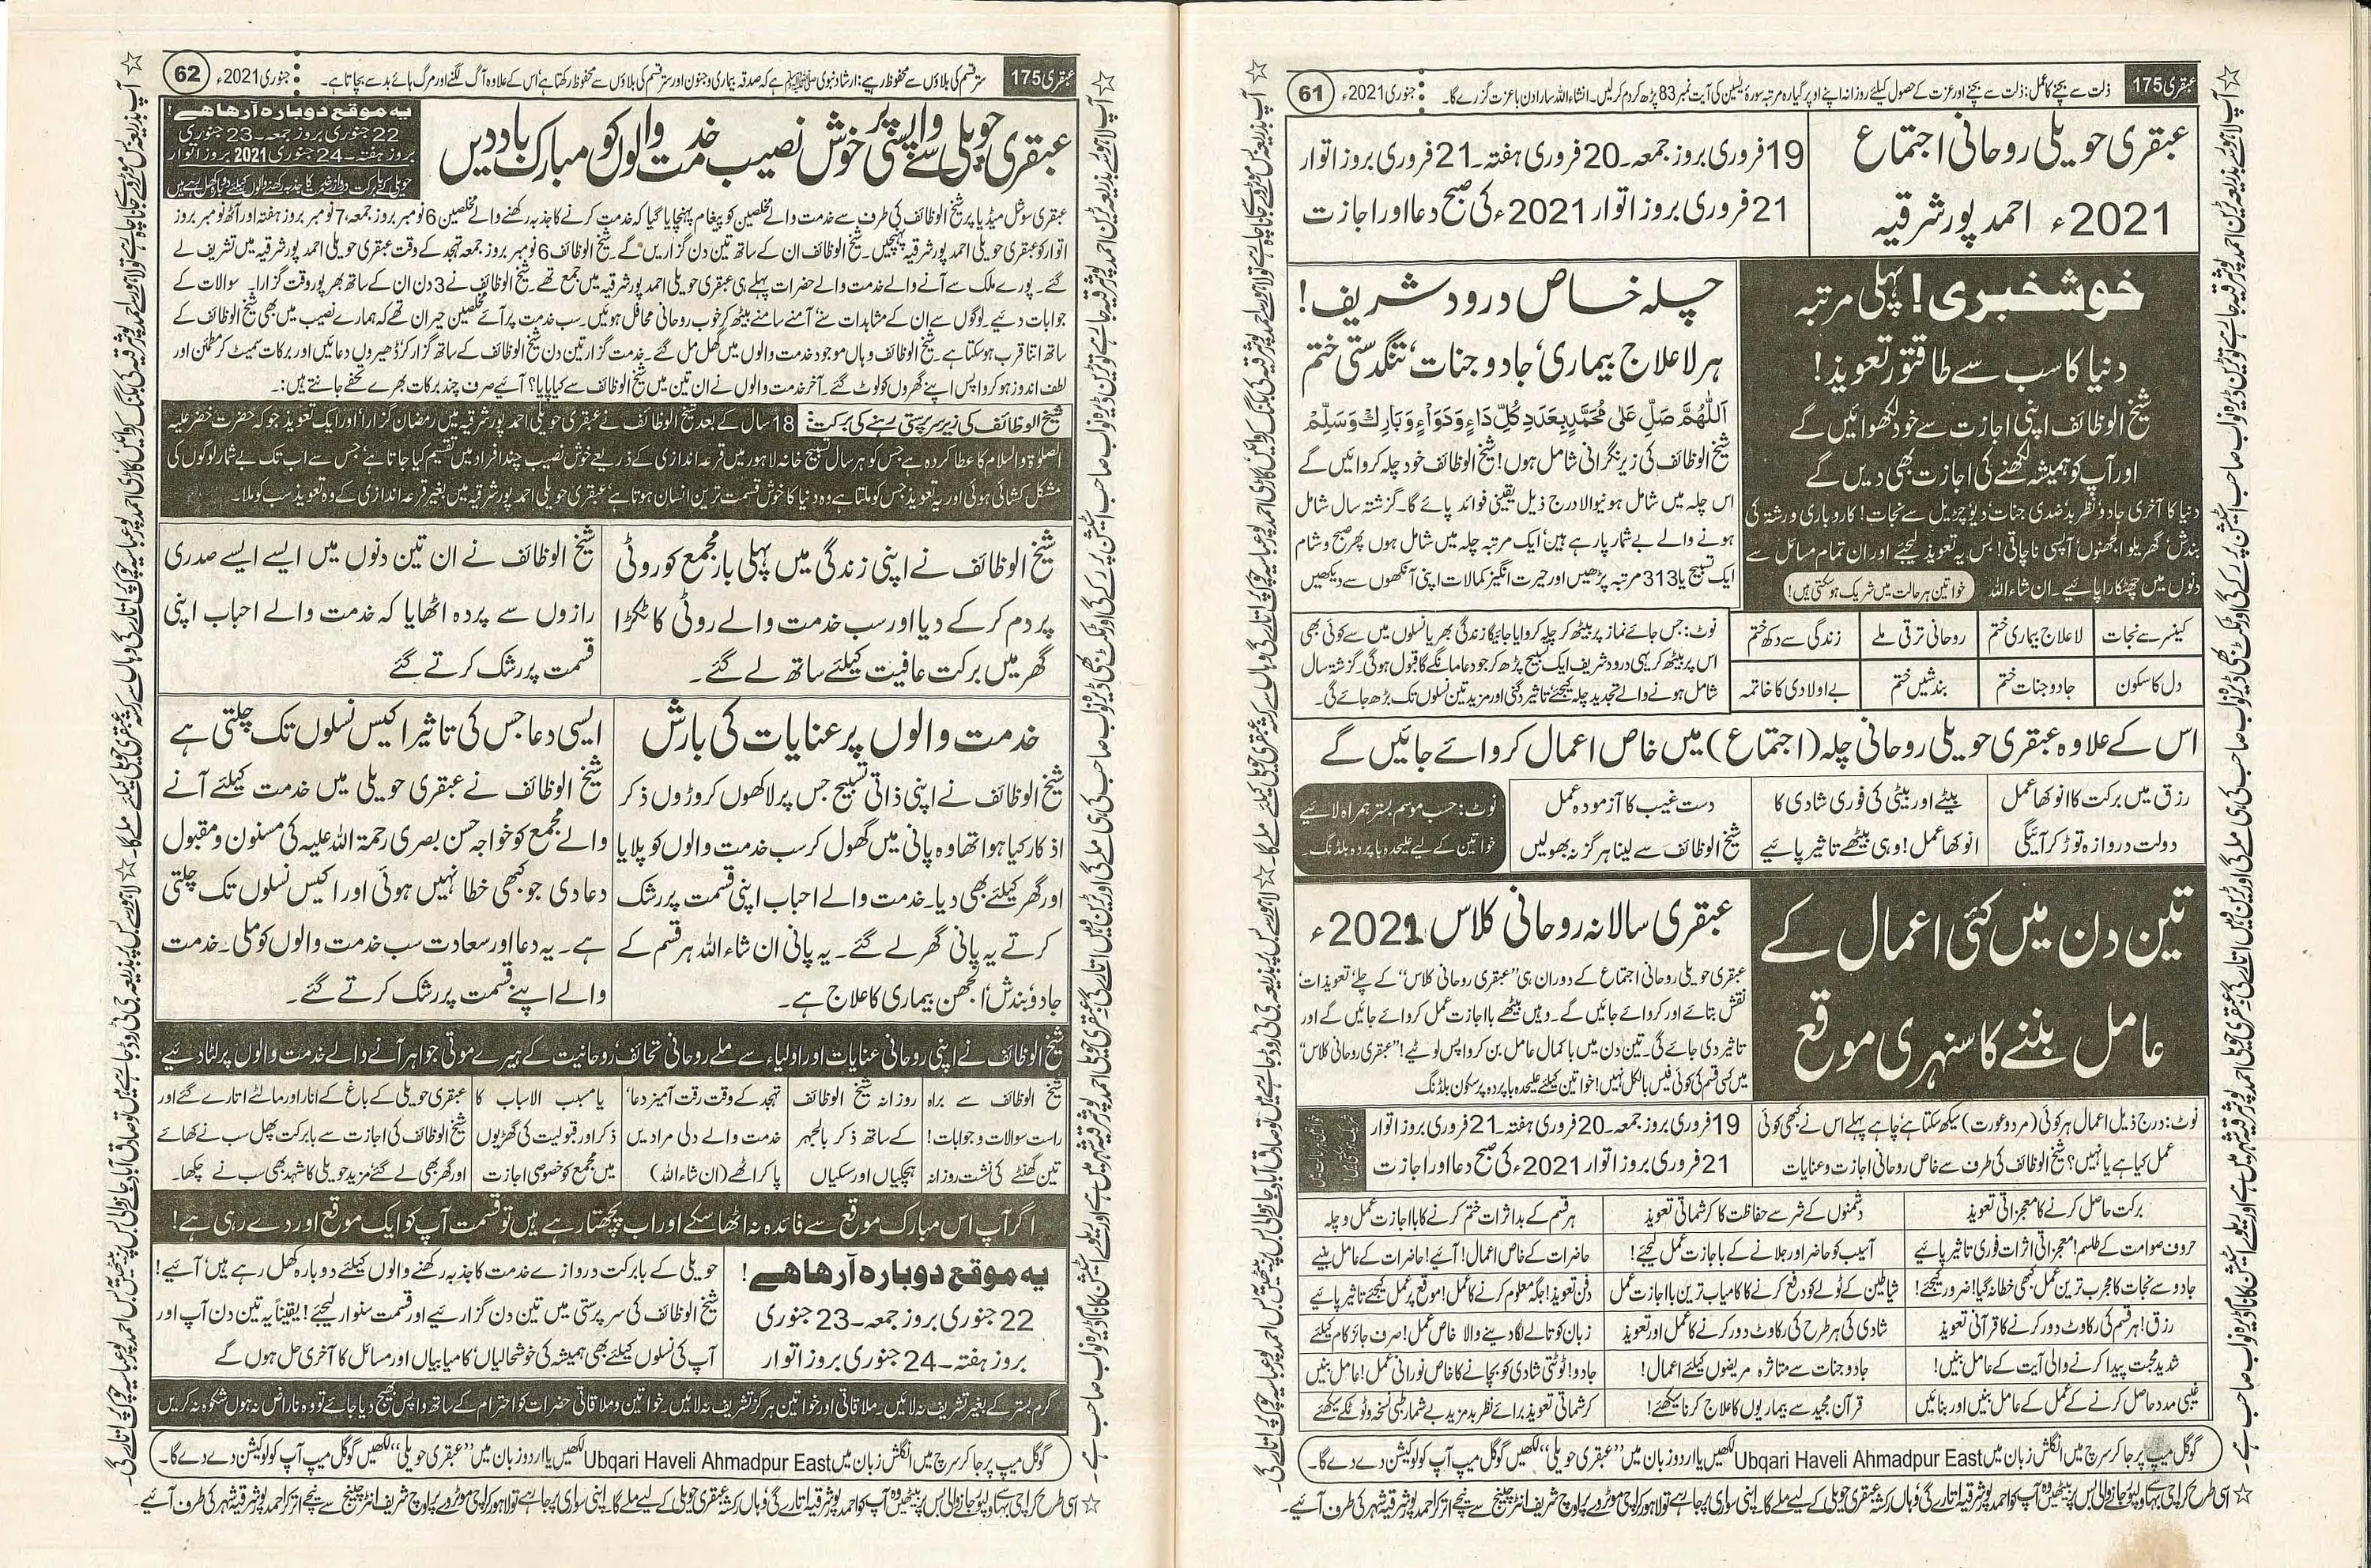 عبقری 175
ذلت سے بچنے کا عمل: ذلت سے بچنے اور عزت کے حصول کیلئے روزانہ اپنے اوپر گیارہ مرتبہ سورۂ یٰسین کی آیت نمبر 83 پڑھ کر دم کرلیں۔ انشاءاللہ سارا دن باعزت گزرے گا۔
جنوری 2021ء
61
عبقری حویلی روحانی اجتماع
2021ء احمد پور شرقیہ
19 فروری بروز جمعہ۔ 20 فروری ہفتہ۔ 21 فروری بروز اتوار
21 فروری بروز اتوار 2021ء کی صبح دعا اور اجازت
خوشخبری! پہلی مرتبہ
دنیا کا سب سے طاقتور تعویذ!
شیخ الوظائف اپنی اجازت سے خود لکھوائیں گے
اور آپ کو ہمیشہ لکھنے کی اجازت بھی دیں گے
دنیا کا آخری جادو، نظر بد، ضدی جنات، دیو، چڑیل سے نجات! کاروباری و رشتہ کی
بندش، گھریلو الجھنوں، آپسی ناچاقی! بس یہ تعویذ لیجئے اور ان تمام مسائل سے
دنوں میں چھٹکارا پائیے۔ ان شاء اللہ
خواتین ہر حالت میں شریک ہوسکتی ہیں!
چلہ خاص درود شریف!
ہر لاعلاج بیماری، جادو جنات، تنگدستی ختم
اَللّٰهُمَّ صَلِّ عَلٰى مُحَمَّدٍ بِعَدَدِ كُلِّ دَاءٍ وَدَوَاءٍ وَبَارِكْ وَسَلِّمْ
شیخ الوظائف کی زیرنگرانی شامل ہوں! شیخ الوظائف خود چلہ کروائیں گے
اس چلہ میں شامل ہونیوالا درج ذیل یقینی فوائد پائے گا۔ گزشتہ سال شامل
ہونے والے بے شمار پارہے ہیں، ایک مرتبہ چلہ میں شامل ہوں پھر صبح و شام
ایک تسبیح یا 313 مرتبہ پڑھیں اور حیرت انگیز کمالات اپنی آنکھوں سے دیکھیں
کینسر سے نجات
لاعلاج بیماری ختم
روحانی ترقی ملے
زندگی سے دکھ ختم
دل کا سکون
جادو جنات ختم
بندشیں ختم
بے اولادی کا خاتمہ
نوٹ: جس جائے نماز پر بیٹھ کر چلہ کروایا جائیگا زندگی بھر یا نسلوں میں سے کوئی بھی
اس پر بیٹھ کر یہی درود شریف ایک تسبیح پڑھ کر جو دعا مانگے گا قبول ہوگی۔ گزشتہ سال
شامل ہونے والے تجدید چلہ کیجئے، تاثیر دگنی اور مزید تین نسلوں تک بڑھ جائے گی۔
اس کے علاوہ عبقری حویلی روحانی چلہ (اجتماع) میں خاص اعمال کروائے جائیں گے
رزق میں برکت کا انوکھا عمل
دولت دروازہ توڑ کر آئیگی
بیٹے اور بیٹی کی فوری شادی کا
انوکھا عمل! وہی بیٹھے تاثیر پائیے
دست غیب کا آزمودہ عمل
شیخ الوظائف سے لینا ہرگز نہ بھولیں
نوٹ: حسب موسم بستر ہمراہ لائیے
خواتین کے لیے علیحدہ باپردہ بلڈنگ۔
تین دن میں کئی اعمال کے
عامل بننے کا سنہری موقع
عبقری سالانہ روحانی کلاس 2021ء
عبقری حویلی روحانی اجتماع کے دوران ہی ”عبقری روحانی کلاس“ کے چلے، تعویذات،
نقش بتائے اور کروائے جائیں گے۔ وہیں بیٹھے بااجازت عمل کروائے جائیں گے اور
تاثیر دی جائے گی۔ تین دن میں باکمال عامل بن کر واپس لوٹیے! ”عبقری روحانی کلاس“
میں کسی قسم کی کوئی فیس بالکل نہیں! خواتین کیلئے علیحدہ باپردہ پرسکون بلڈنگ
نوٹ: درج ذیل اعمال ہر کوئی (مرد و عورت) سیکھ سکتا ہے، چاہے پہلے اس نے کبھی کوئی
عمل کیا ہے یا نہیں؟ شیخ الوظائف کی طرف سے خاص روحانی اجازت و عنایات
19 فروری بروز جمعہ۔ 20 فروری ہفتہ۔ 21 فروری بروز اتوار
21 فروری بروز اتوار 2021ء کی صبح دعا اور اجازت
برکت حاصل کرنے کا معجزاتی تعویذ
دشمنوں کے شر سے حفاظت کا کرشماتی تعویذ
ہر قسم کے بداثرات ختم کرنے کا بااجازت عمل و چلہ
حروف صوامت کے طلسم! معجزاتی اثرات فوری تاثیر پائیے
آسیب کو حاضر اور جلانے کے باجازت عمل لیجئے!
حاضرات کے خاص اعمال! آئیے! حاضرات کے عامل بنیے
جادو سے نجات کا مجرب ترین عمل کبھی خطا نہ گیا! ضرور کیجئے!
شیاطین کے ٹولے کو دفع کرنے کا کامیاب ترین بااجازت عمل
دفن تعویذ! جگہ معلوم کرنے کا عمل! موقع پر عمل کیجئے تاثیر پائیے
رزق! ہر قسم کی رکاوٹ دور کرنے کا قرآنی تعویذ
شادی کی ہر طرح کی رکاوٹ دور کرنے کا عمل اور تعویذ
زبان کو تالے لگا دینے والا خاص عمل! صرف جائز کام کیلئے
شدید محبت پیدا کرنے والی آیت کے عامل بنیں!
جادو جنات سے متاثرہ مریضوں کیلئے اعمال!
جادو! ٹوٹتی شادی کو بچانے کا خاص نورانی عمل! عامل بنیں
غیبی مدد حاصل کرنے کے عمل کے عامل بنیں اور بنائیں
قرآن مجید سے بیماریوں کا علاج کرنا سیکھئے!
کرشماتی تعویذ برائے نظربد مزید بے شمار طبی نسخہ و ٹوٹکے سیکھئے
گوگل میپ پر جا کر سرچ میں انگلش زبان میں Ubqari Haveli Ahmadpur East لکھیں یا اردو زبان میں ”عبقری حویلی“ لکھیں گوگل میپ آپ کو لوکیشن دے دے گا۔
عبقری 175
ستر قسم کی بلاؤں سے محفوظ رہیے: ارشاد نبوی ﷺ ہے کہ صدقہ بیماری و جنون اور ستر قسم کی بلاؤں سے محفوظ رکھتا ہے، اس کے علاوہ آگ لگنے اور مرگ ہائے بد سے بچاتا ہے۔
جنوری 2021ء
62
عبقری حویلی سے واپسی پر خوش نصیب خدمت والوں کو مبارک باد دیں
یہ موقع دوبارہ آرہا ہے!
22 جنوری بروز جمعہ۔ 23 جنوری
بروز ہفتہ۔ 24 جنوری 2021 بروز اتوار
عبقری سوشل میڈیا پر شیخ الوظائف کی طرف سے خدمت والے مخلصین کو پیغام پہنچایا گیا کہ خدمت کرنے کا جذبہ رکھنے والے مخلصین 6 نومبر بروز جمعہ، 7 نومبر بروز ہفتہ اور آٹھ نومبر بروز
اتوار کو عبقری حویلی احمد پور شرقیہ پہنچیں۔ شیخ الوظائف ان کے ساتھ تین دن گزاریں گے۔ شیخ الوظائف 6 نومبر بروز جمعہ تہجد کے وقت عبقری حویلی احمد پور شرقیہ میں تشریف لے
گئے۔ پورے ملک سے آنے والے خدمت والے حضرات پہلے ہی عبقری حویلی احمد پور شرقیہ میں جمع تھے۔ شیخ الوظائف نے 3 دن ان کے ساتھ بھرپور وقت گزارا۔ سوالات کے
جوابات دئیے۔ لوگوں سے ان کے مشاہدات سنے، آمنے سامنے بیٹھ کر خوب روحانی محافل ہوئیں۔ سب خدمت پر آئے مخلصین حیران تھے کہ ہمارے نصیب میں بھی شیخ الوظائف کے
ساتھ اتنا قرب ہوسکتا ہے۔ شیخ الوظائف وہاں موجود خدمت والوں میں گھل مل گئے۔ خدمت گزار تین دن شیخ الوظائف کے ساتھ گزار کر ڈھیروں دعائیں اور برکات سمیٹ کر مطمئن اور
لطف اندوز ہو کر واپس اپنے گھروں کو لوٹ گئے۔ آخر خدمت والوں نے ان تین میں شیخ الوظائف سے کیا پایا؟ آئیے صرف چند برکات بھرے تحفے جانتے ہیں:۔
شیخ الوظائف کی زیر سرپرستی رہنے کی برکت: 18 سال کے بعد شیخ الوظائف نے عبقری حویلی احمد پور شرقیہ میں رمضان گزارا، اور ایک تعویذ جو کہ حضرت خضر علیہ
الصلوٰۃ والسلام کا عطا کردہ ہے جس کو ہر سال تسبیح خانہ لاہور میں قرعہ اندازی کے ذریعے خوش نصیب چند افراد میں تقسیم کیا جاتا ہے، جس سے اب تک بے شمار لوگوں کی
مشکل کشائی ہوئی اور یہ تعویذ جس کو ملتا ہے وہ دنیا کا خوش قسمت ترین انسان ہوتا ہے، عبقری حویلی احمد پور شرقیہ میں بغیر قرعہ اندازی کے وہ تعویذ سب کو ملا۔
شیخ الوظائف نے اپنی زندگی میں پہلی بار مجمع کو روٹی
پر دم کر کے دیا اور سب خدمت والے روٹی کا ٹکڑا
گھر میں برکت عافیت کیلئے ساتھ لے گئے۔
شیخ الوظائف نے ان تین دنوں میں ایسے ایسے صدری
رازوں سے پردہ اٹھایا کہ خدمت والے احباب اپنی
قسمت پر رشک کرتے گئے
خدمت والوں پر عنایات کی بارش
شیخ الوظائف نے اپنی ذاتی تسبیح جس پر لاکھوں کروڑوں ذکر
اذکار کیا ہوا تھا وہ پانی میں گھول کر سب خدمت والوں کو پلایا
اور گھر کیلئے بھی دیا۔ خدمت والے احباب اپنی قسمت پر رشک
کرتے یہ پانی گھر لے گئے۔ یہ پانی ان شاء اللہ ہر قسم کے
جادو، بندش، الجھن، بیماری کا علاج ہے۔
ایسی دعا جس کی تاثیر اکیس نسلوں تک چلتی ہے
شیخ الوظائف نے عبقری حویلی میں خدمت کیلئے آنے
والے مجمع کو خواجہ حسن بصری رحمۃ اللہ علیہ کی مسنون و مقبول
دعا دی جو کبھی خطا نہیں ہوئی اور اکیس نسلوں تک چلتی
ہے۔ یہ دعا اور سعادت سب خدمت والوں کو ملی۔ خدمت
والے اپنے قسمت پر رشک کرتے گئے۔
شیخ الوظائف نے اپنی روحانی عنایات اور اولیاء سے ملے روحانی تحائف، روحانیت کے ہیرے موتی جواہر آنے والے خدمت والوں پر لٹا دئیے
شیخ الوظائف سے براہ
راست سوالات و جوابات!
تین گھنٹے کی نشت روزانہ
روزانہ شیخ الوظائف
کے ساتھ ذکر بالجہر
ہچکیاں اور سسکیاں
تہجد کے وقت رقت آمیز دعا،
خدمت والے دلی مرادیں
پا کر اٹھے (ان شاء اللہ)
یا مسبب الاسباب کا
ذکر اور قبولیت کی گھڑیوں
میں مجمع کو خصوصی اجازت
عبقری حویلی کے باغ کے انار اور مالٹے اتارے گئے اور
شیخ الوظائف کی اجازت سے بابرکت پھل سب نے کھائے
اور گھر بھی لے گئے، مزید حویلی کا شہد بھی سب نے چکھا۔
اگر آپ اس مبارک موقع سے فائدہ نہ اٹھا سکے اور اب پچھتا رہے ہیں تو قسمت آپ کو ایک موقع اور دے رہی ہے!
یہ موقع دوبارہ آرہا ہے!
22 جنوری بروز جمعہ۔ 23 جنوری
بروز ہفتہ۔ 24 جنوری بروز اتوار
حویلی کے بابرکت دروازے خدمت کا جذبہ رکھنے والوں کیلئے دوبارہ کھل رہے ہیں، آئیے!
شیخ الوظائف کی سرپرستی میں تین دن گزاریے اور قسمت سنوار لیجئے! یقیناً یہ تین دن آپ اور
آپ کی نسلوں کیلئے بھی ہمیشہ کی خوشحالیاں، کامیابیاں اور مسائل کا آخری حل ہوں گے
گرم بستر کے بغیر تشریف نہ لائیں۔ ملاقاتی اور خواتین ہرگز تشریف نہ لائیں۔ خواتین و ملاقاتی حضرات کو احترام کے ساتھ واپس بھیج دیا جائے تو وہ ناراض نہ ہوں شکوہ نہ کریں
گوگل میپ پر جا کر سرچ میں انگلش زبان میں Ubqari Haveli Ahmadpur East لکھیں یا اردو زبان میں ”عبقری حویلی“ لکھیں گوگل میپ آپ کو لوکیشن دے دے گا۔